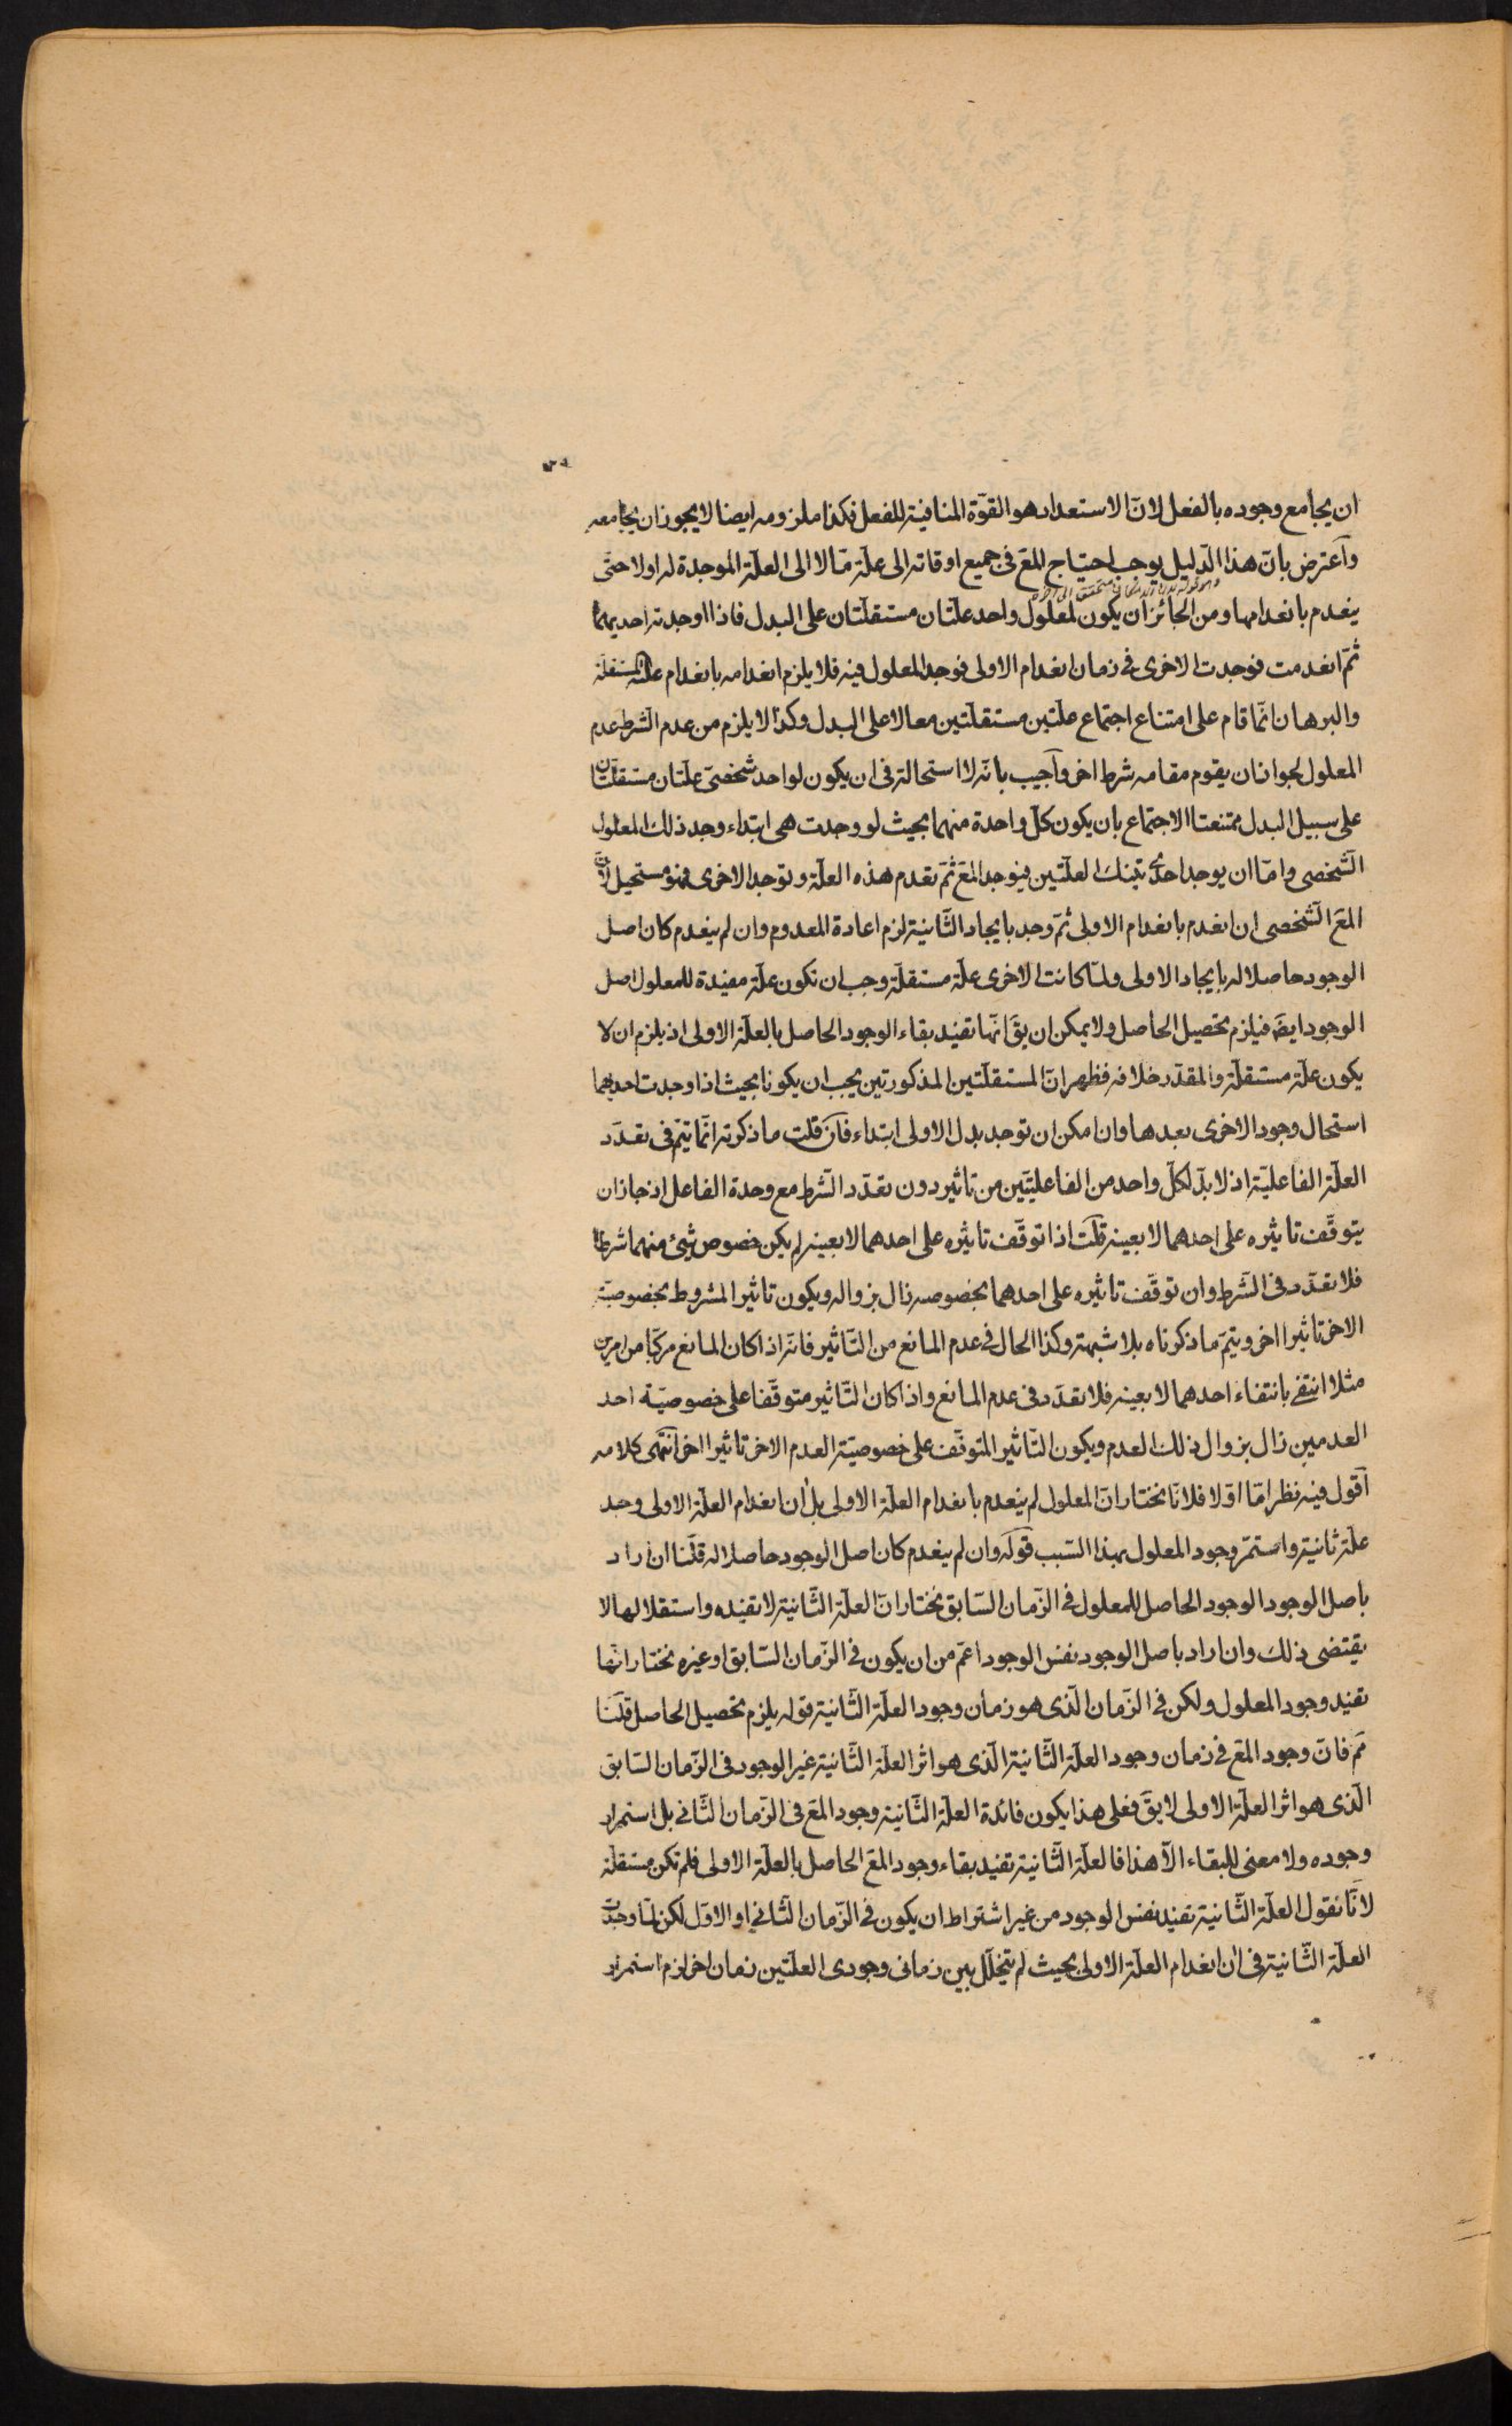 ان يجامع وجوده بالفعل لانّ الاستعداد هو القوّة المنافية للفعل فكذا ملزومه ايضا لا يجوز ان يجامعه
وآعترض بانّ هذا الدّليل يوجب احتياج المع فى جميع اوقاته الى علّة مّا لا الى العلّة الموجدة له اولا حتّى
ينعدم بانعدامها ومن الجائز ان يكون لمعلول واحد علّتان مستقلّتان على البدل فاذا اوجدته احديهما
ثمّ انعدمت فوجدت الاخرى فى زمان انعدام الاولى فوجد المعلول فيه فلا يلزم انعدامه بانعدام علّته المستقلّة
والبرهان انّما قام على امتناع اجتماع علّتين مستقلّتين معا لا على البدل وكذا لا يلزم من عدم الشّرط عدم
المعلول لجواز ان يقوم مقامه شرط اخر وآجيب بانّه لا استحالة فى ان يكون لواحد شخصىّ علّتان مستقلّتان
على سبيل البدل ممتنعتا الاجتماع بان يكون كلّ واحدة منهما بحيث لو وجدت هى ابتداء وجد ذلك المعلول
الشّخصى وامّا ان يوجد احدى تينك العلّتين فيوجد المع ثمّ تعدم هذه العلّة وتوجد الاخرى فهو مستحيل لانّ
المع الشّخصى ان انعدم بانعدام الاولى ثمّ وجد بايجاد الثّانية لزم اعادة المعدوم وان لم ينعدم كان اصل
الوجود حاصلا له بايجاد الاولى ولمّا كانت الاخرى علّة مستقلّة وجب ان تكون علّة مفيدة للمعلول اصل
الوجود ايضَ فيلزم تحصيل الحاصل ولا يمكن ان يقَ انّها تفيد بقاء الوجود الحاصل بالعلّة الاولى اذ يلزم ان لا
يكون علّة مستقلّة والمقدّر خلافه فظهر انّ المستقلّتين المذكورتين يجب ان يكونا بحيث اذا وجدت احديهما
استحال وجود الاخرى بعدها وان امكن ان توجد بدل الاولى ابتداء فآن قلت ما ذكرته انّما يتمّ فى تعدّد
العلّة الفاعليّة اذ لا بدّ لكلّ واحد من الفاعليّتين من تاثير دون تعدّد الشّرط مع وحدة الفاعل اذ جاز ان
يتوقّف تاثيره على احدهما لا بعينه قلت اذا توقّف تاثيره على احدهما لا بعينه لم يكن خصوص شىء منهما شرطا
فلا تعدّد فى الشّرط وان توقّف تاثيره على احدهما بخصوصه زال بزواله ويكون تاثير المشروط بخصوصيّة
الاخر تاثيرا اخر ويتمّ ما ذكرناه بلا شبهة وكذا الحال فى عدم المانع من التّاثير فانّه اذا كان المانع مركّبا من امرين
مثلا انتفى بانتفاء احدهما لا بعينه فلا تعدّد فى عدم المانع واذا كان التّاثير متوقّفا على خصوصيّة احد
العدمين زال بزوال ذلك العدم ويكون التّاثير المتوقّف على خصوصيّة العدم الاخر تاثيرا اخر انتهى كلامه
آقول فيه نظر امّا اوّلا فلانّا نختار انّ المعلول لم ينعدم بانعدام العلّة الاولى بل ان انعدام العلّة الاولى وجد
علّة ثانية واستمرّ وجود المعلول بهذا السّبب قوله وان لم ينعدم كان اصل الوجود حاصلا له قلنا ان اراد
باصل الوجود الوجود الحاصل للمعلول فى الزّمان السّابق نختار انّ العلّة الثّانية لا تفيده واستقلالها لا
يقتضى ذلك وان اراد باصل الوجود نفس الوجود اعمّ من ان يكون فى الزّمان السّابق او غيره نختار انّها
تفيد وجود المعلول ولكن فى الزّمان الّذى هو زمان وجود العلّة الثّانية قوله يلزم تحصيل الحاصل قلنا
مَم فانّ وجود المع فى زمان وجود العلّة الثّانية الّذى هو اثر العلّة الثّانية غير الوجود فى الزّمان السّابق
الّذى هو اثر العلّة الاولى لا يقَ فعلى هذا يكون فائدة العلّة الثّانية وجود المع فى الزّمان الثّانى بل استمرار
وجوده ولا معنى للبقاء الّا هذا فالعلّة الثّانية تفيد بقاء وجود المع الحاصل بالعلّة الاولى فلم تكن مستقلّة
لانّا نقول العلّة الثّانية تفيد نفس الوجود من غير اشتراط ان يكون فى الزّمان الثّانى او الاوّل لكن لمّا وجدت
العلّة الثّانية فى ان انعدام العلّة الاولى بحيث لم يتخلّل بين زمانى وجودى العلّتين زمان اخر لزم استمرار